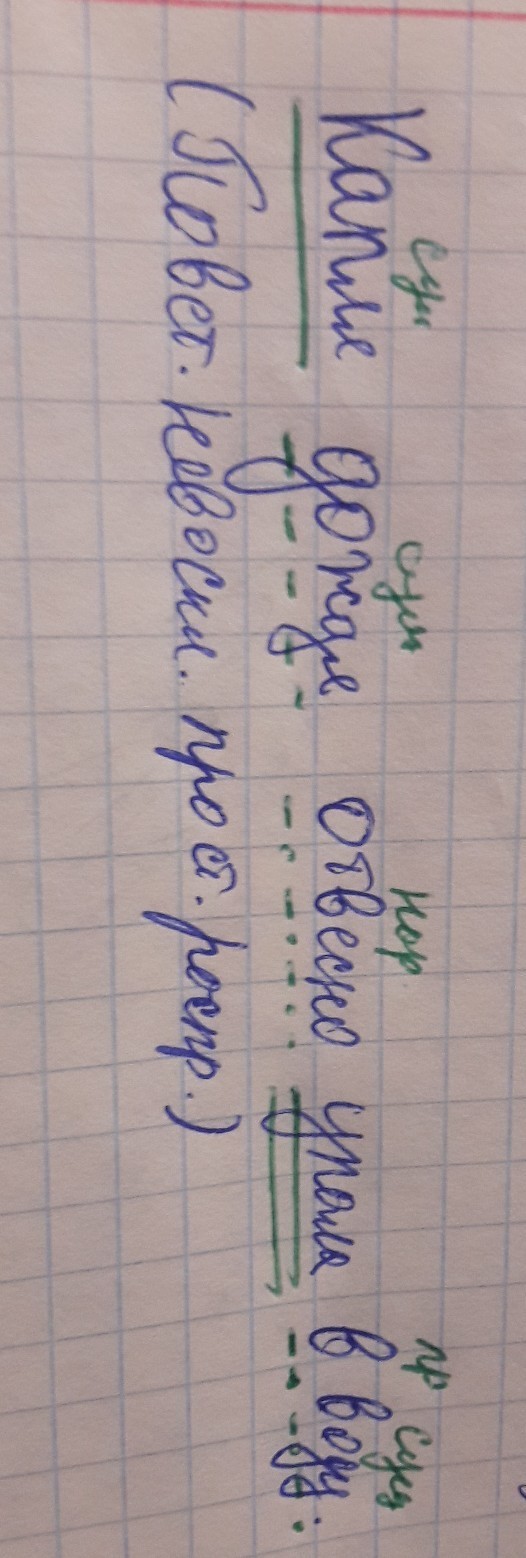 сущ сущ нар пр сущ
Капля дождя отвесно упала в воду.
(Повест. невоскл. прост. распр.)